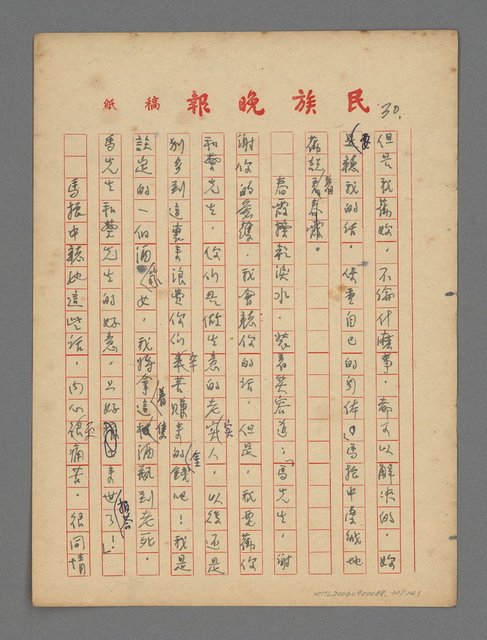 民族晚報 稿紙
30.
但是我勸妳，不論什麼事，都可以解決的，妳
要聽我的話，保重自己的身体！」馬振中虔誠地
勸說着春霞。
春霞擦乾淚水，裝着笑容道：「馬先生，謝
謝你的愛護，我會聽你的話，但是，我要勸你
和曹先生，你們是做生意的老實人，以後還是
別多到這裏來浪費你們辛苦賺來的金錢吧！我是
註定的一個酒女，我將拿這隻酒瓶到老死，
馬先生和曹先生的好意，只好來世報答了！」
馬振中聽她這些話，內心更痛苦，很同情
NMTL20060900088, 30/241